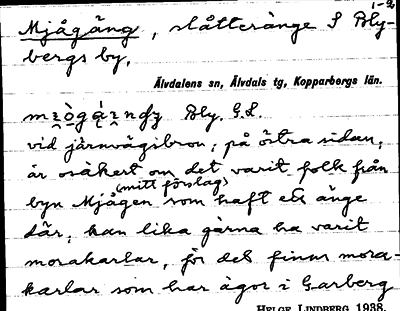 1-2
Mjågäng, slåtteränge S Bly-
bergs by.
Älvdalens sn, Älvdals tg, Kopparbergs län.
Bly. G.S.
vid järnvägsbron, på östra sidan,
är osäkert om det varit folk från
(mitt förslag)
byn Mjågen som haft ett änge
där, kan lika gärna ha varit
morakarlar, för det finns mora-
karlar som har ägor i Garberg
HELGE LINDBERG 1938.